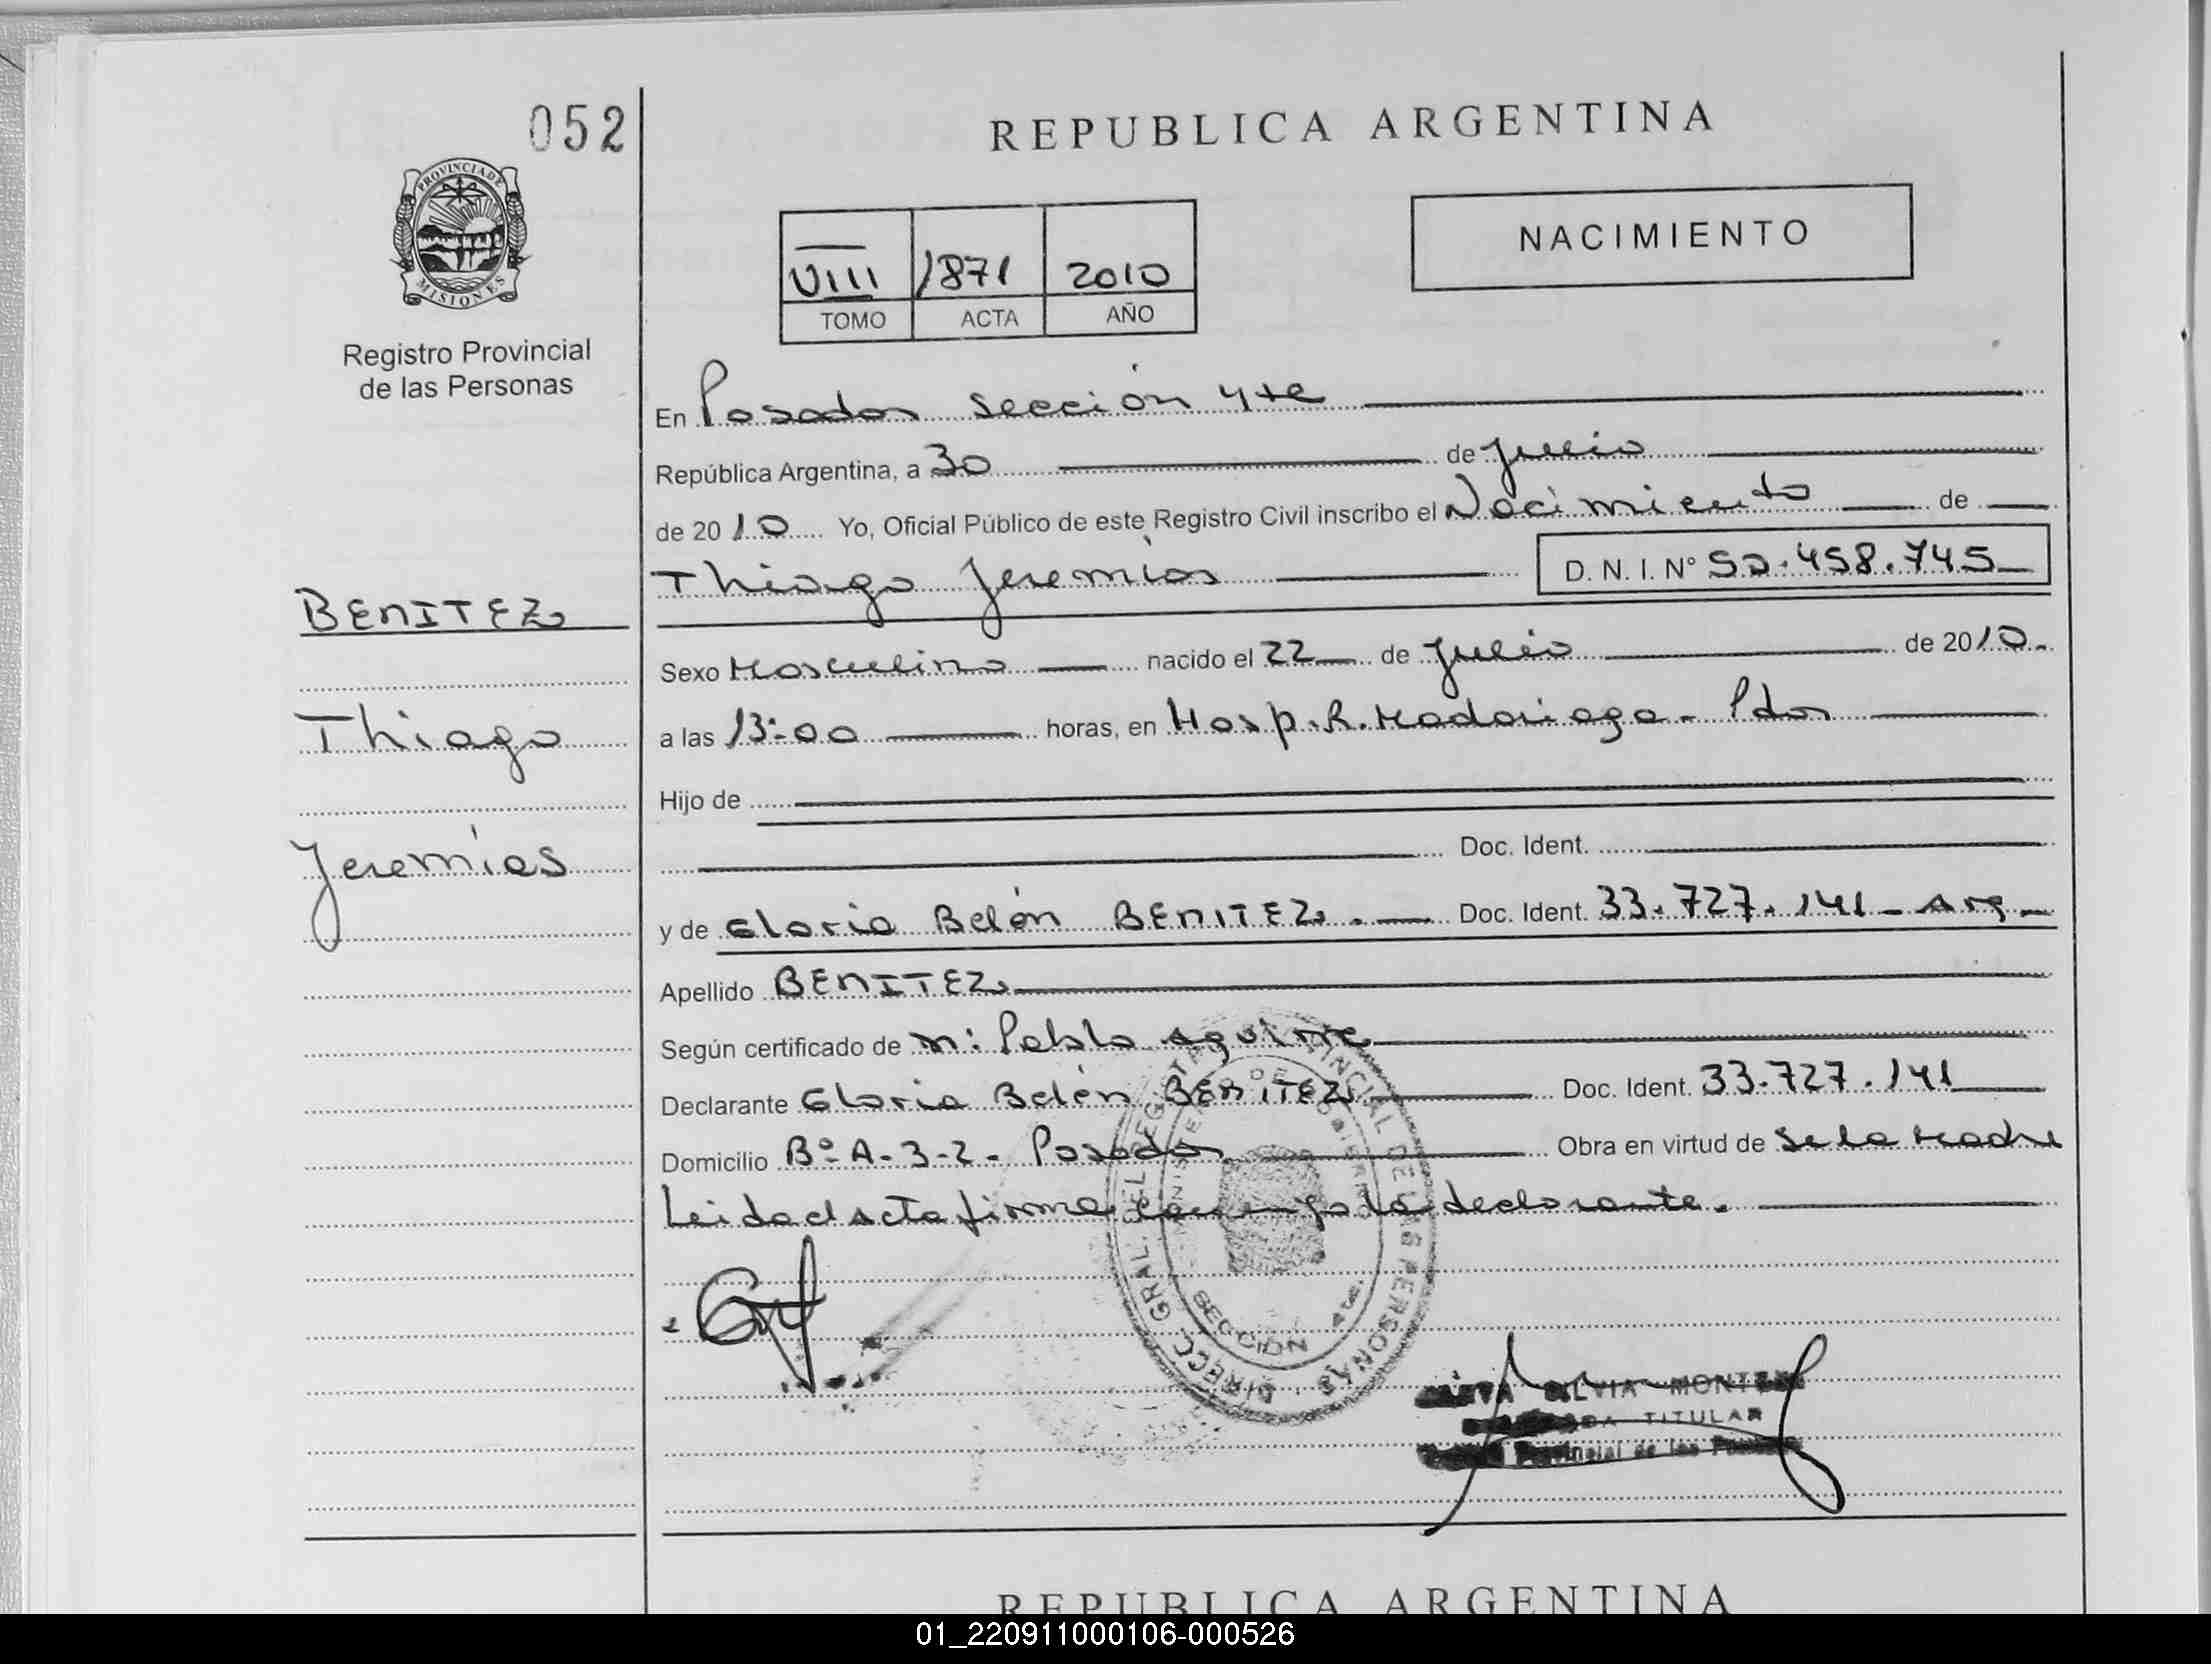 052
REPUBLICA ARGENTINA
PROVINCIA DE
MISIONES
Registro Provincial
de las Personas
VIII 1871 2010
TOMO ACTA AÑO
NACIMIENTO
En Posadas sección 4te
República Argentina, a 30 de julio
de 2010 Yo, Oficial Público de este Registro Civil inscribo el Nacimiento de
Thiago Jeremías D. N. I. Nº 50.458.745
BENITEZ
Thiago
Jeremías
Sexo Masculino nacido el 22 de julio de 2010.
a las 13:00 horas, en Hosp. R. Madariaga - Pdas
Hijo de
Doc. Ident.
y de Gloria Belén BENITEZ. Doc. Ident. 33.727.141 - Arg -
Apellido BENITEZ
Según certificado de M: Pablo Aguirre
Declarante Gloria Belén BENITEZ Doc. Ident. 33.727.141
Domicilio Bº A-3-2- Posadas Obra en virtud de Se la Madre
Leida el acta firma conmigo la declarante.
DIRECC. GRAL. DEL REGISTRO PROVINCIAL DE LAS PERSONAS
SECCION 4te.
SILVIA MONTE
TITULAR
Provincial de las
REPUBLICA ARGENTINA
01_220911000106-000526